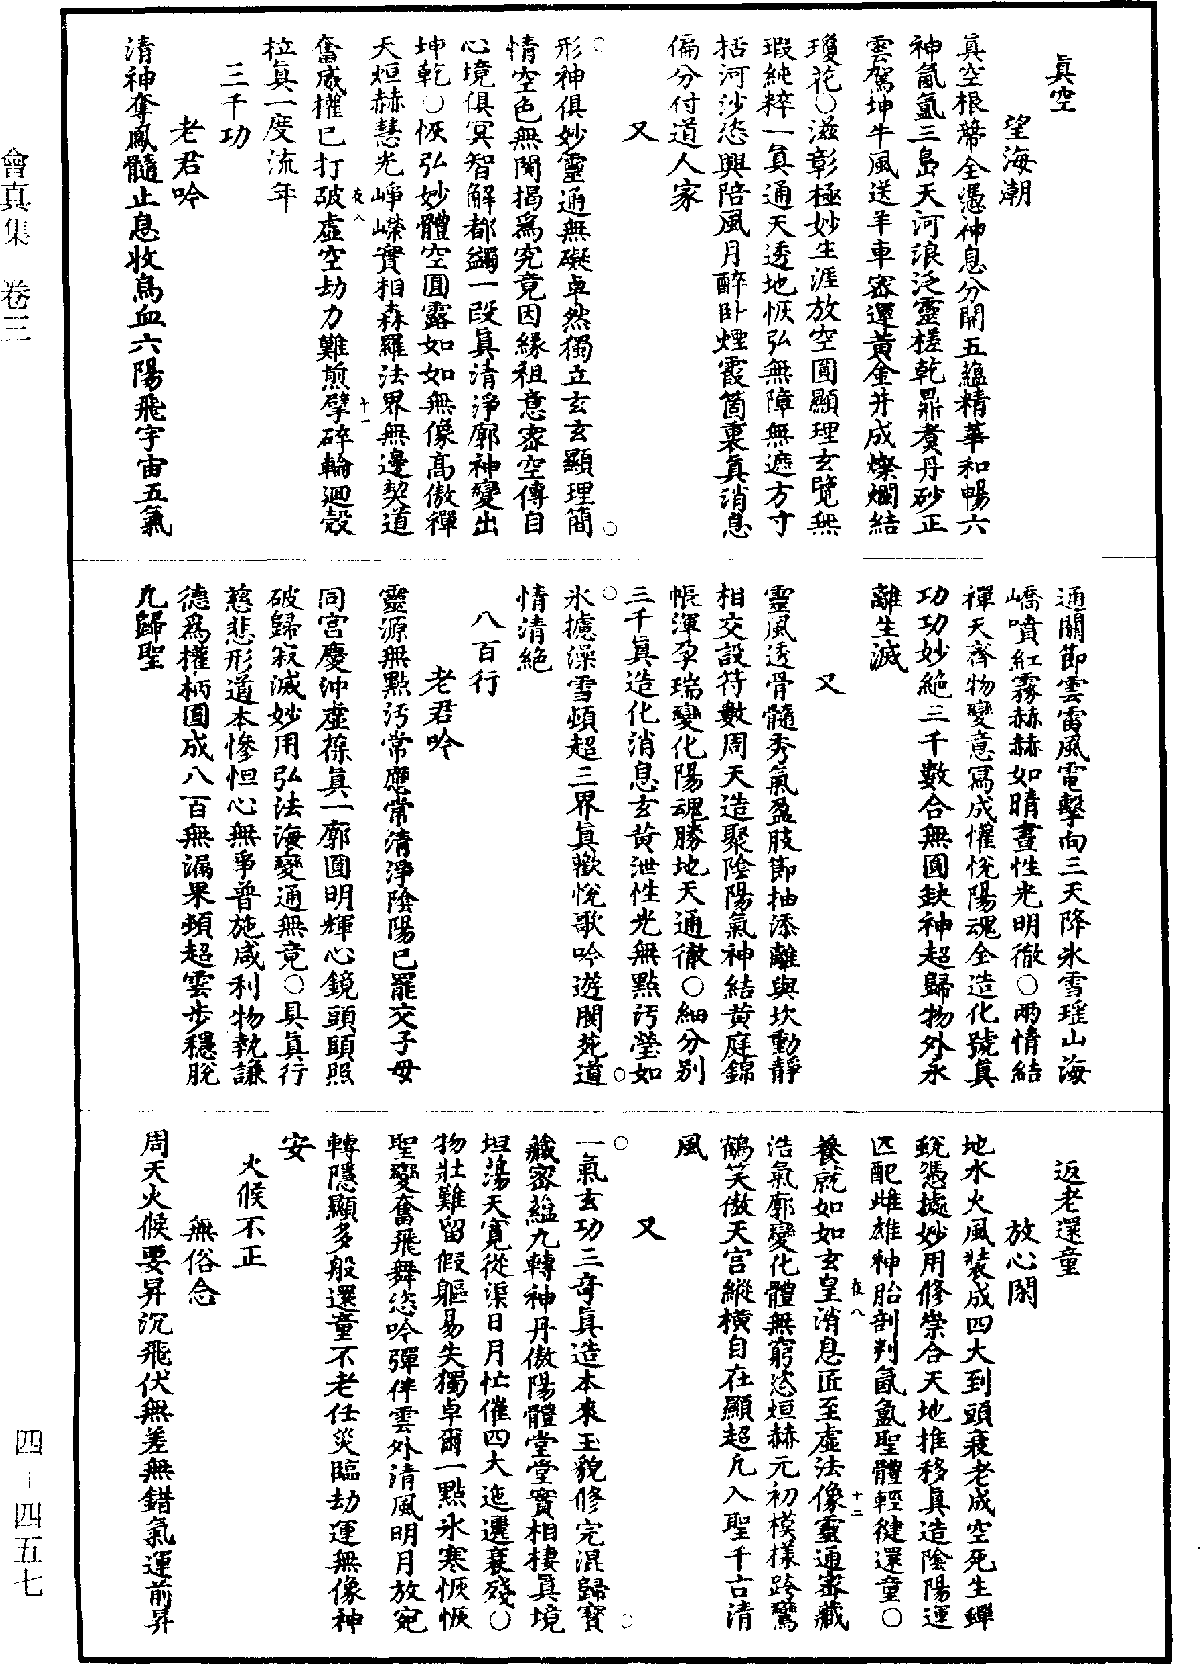 真空
望海潮
真空根蔕全憑神息分開五蘊精華和暢六
神氤氳三島天河浪泛靈槎乾鼎煑丹砂正
雲駕坤牛風送羊車密運黃金井成燦爛結
瓊花○滋彰極妙生涯放空圓顯理玄覽無
瑕純粹一真通天透地恢弘無障無遮方寸
括河沙恣興陪風月醉卧煙霞箇裏真消息
偏分付道人家
又
形神俱妙靈通無礙卓然獨立玄玄顯理簡
情空色無關揭為究竟因緣祖意密空傳自
心境俱冥智解都蠲一段真清淨廓神變出
坤乾○恢弘妙體空圓露如如無像高傲禪
天烜赫慧光崢嶸實相森羅法界無邊契道
奮威權已打破虛空劫力難煎擘碎輪迴殼
位真一度流年
三千功
老君吟
清神奪鳳髓止息收烏血六陽飛宇宙五氣
通關節雲雷風電擊向三天降氷雪瑤山海
嶠噴紅霧赫赫如晴晝性光明徹○兩情結
禪天齊物變意寫成懽悅陽魂全造化號真
功功妙絶三千數合無圓缺神超歸物外永
離生滅
又
靈風透骨髓秀氣盈肢節抽添離與坎動靜
相交設符數周天造聚陰陽氣神結黃庭錦
帳渾孕瑞變化陽魂勝地天通徹○細分別
三千真造化消息玄黃泄性光無點汚瑩如
氷攄澡雪頓超三界真歡悅歌吟遊閬苑道
情清絶
八百行
老君吟
靈源無點汚常應常清淨陰陽已罷交子母
同宮慶沖虛葆真一廓圓明輝心鏡頭頭照
破歸寂滅妙用弘法海變通無竟○具真行
慈悲形道本慘怛心無爭普施咸利物執謙
德為權柄圓成八百無漏果頓超雲步穩脫
凡歸聖
返老還童
放心閑
地水火風裝成四大到頭衰老成空死生蟬
蛻憑據妙用修崇合天地推移真造陰陽運
匹配雌雄神胎剖判氤氳聖體輕健還童○
養就如如玄皇消息匠至虛法像靈通密藏
浩氣廓變化體無窮恣烜赫元初模樣跨鸞
鶴笑傲天宮縱橫自在顯超凡入聖千古清
風
又
一氣玄功三奇真造本來玉貌修完混歸寶
藏密緼九轉神丹傲陽體堂堂實相棲真境
坦蕩天寬從渠日月忙催四大迤邐衰殘○
物壯難留假軀易失獨卓爾一點氷寒恢恢
聖變奮飛舞恣吟彈伴雲外清風明月放宛
轉隱顯多般還童不老任災臨劫運無像神
安
火候不正
無俗念
周天火候要昇沉飛伏無差無錯氣運前昇
會真集　卷三
四－四五七